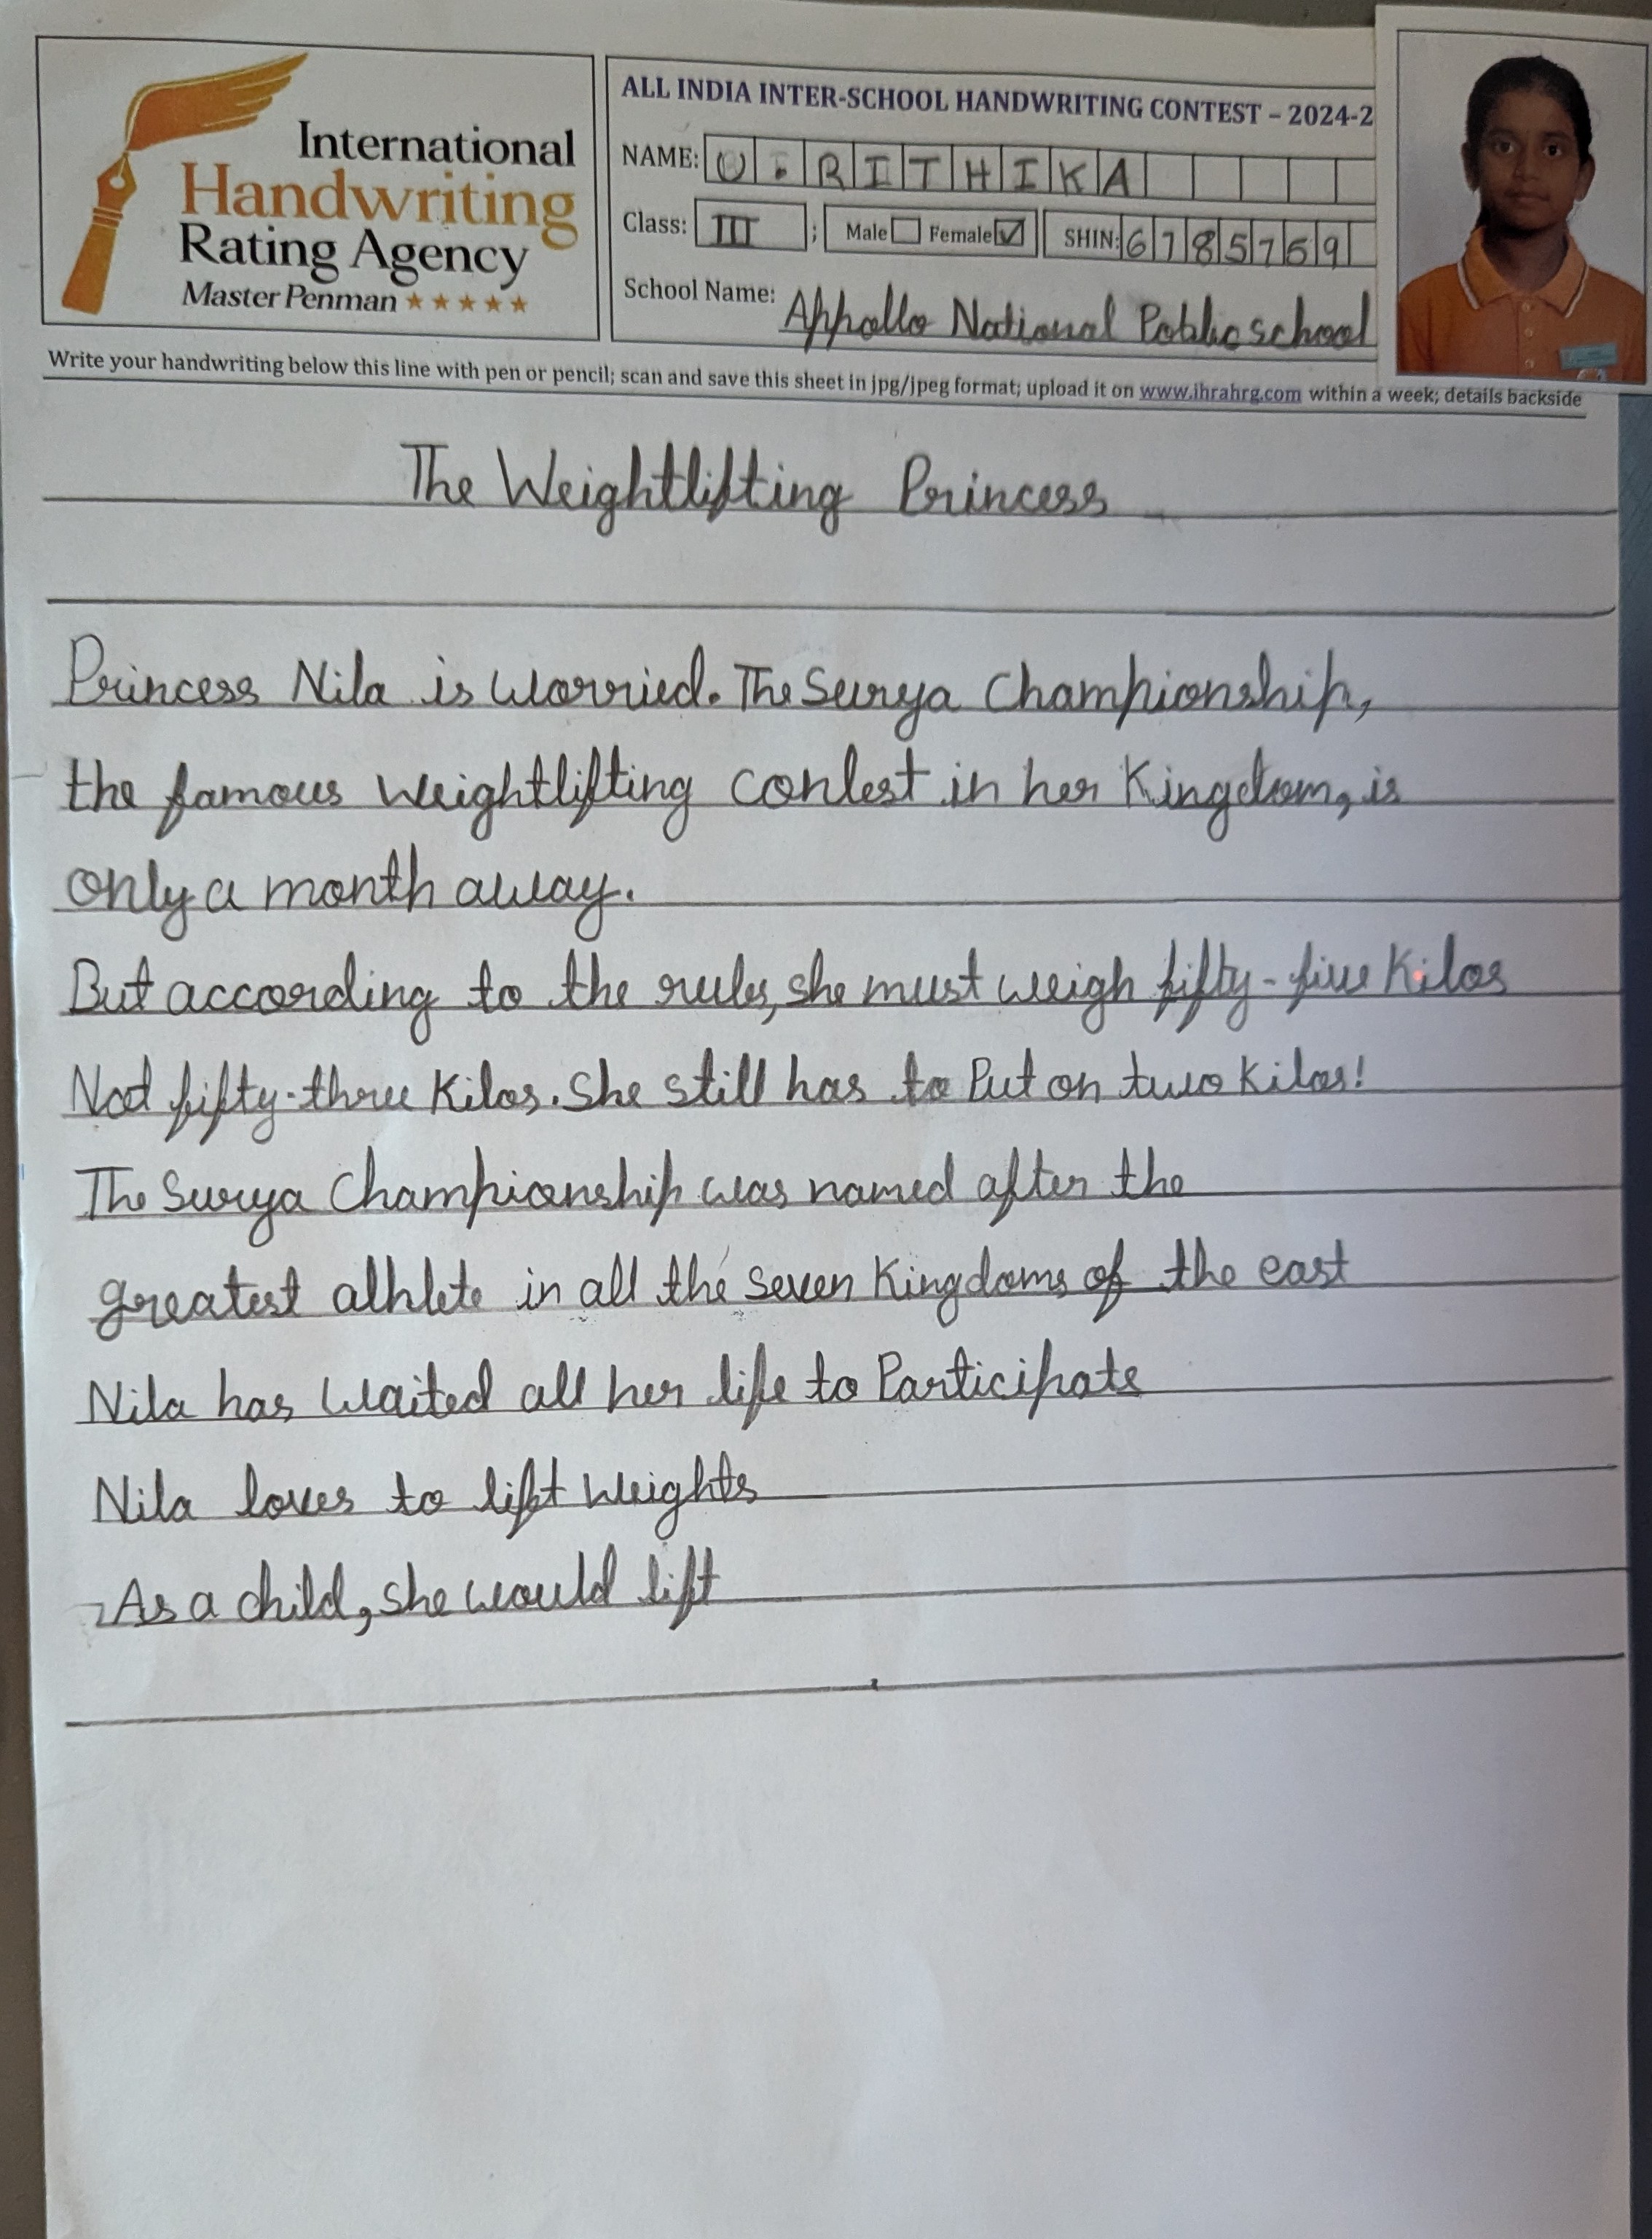 International
Handwriting
Rating Agency
Master Penman ★★★★★
ALL INDIA INTER-SCHOOL HANDWRITING CONTEST – 2024-2
NAME: U. RITHIKA
Class: III ; Male Female ✓ SHIN: 6785759
School Name: Appollo National Public school
Write your handwriting below this line with pen or pencil; scan and save this sheet in jpg/jpeg format; upload it on www.ihrahrg.com within a week; details backside
The Weightlifting Princess
Princess Nila is worried. The Surya Championship,
the famous weightlifting contest in her Kingdom, is
only a month away.
But according to the rules, she must weigh fifty-five Kilos
Not fifty-three Kilos. She still has to Put on two Kilos!
The Surya Championship was named after the
greatest athlete in all the seven Kingdoms of the east
Nila has waited all her life to Participate
Nila loves to lift weights
As a child, she would lift